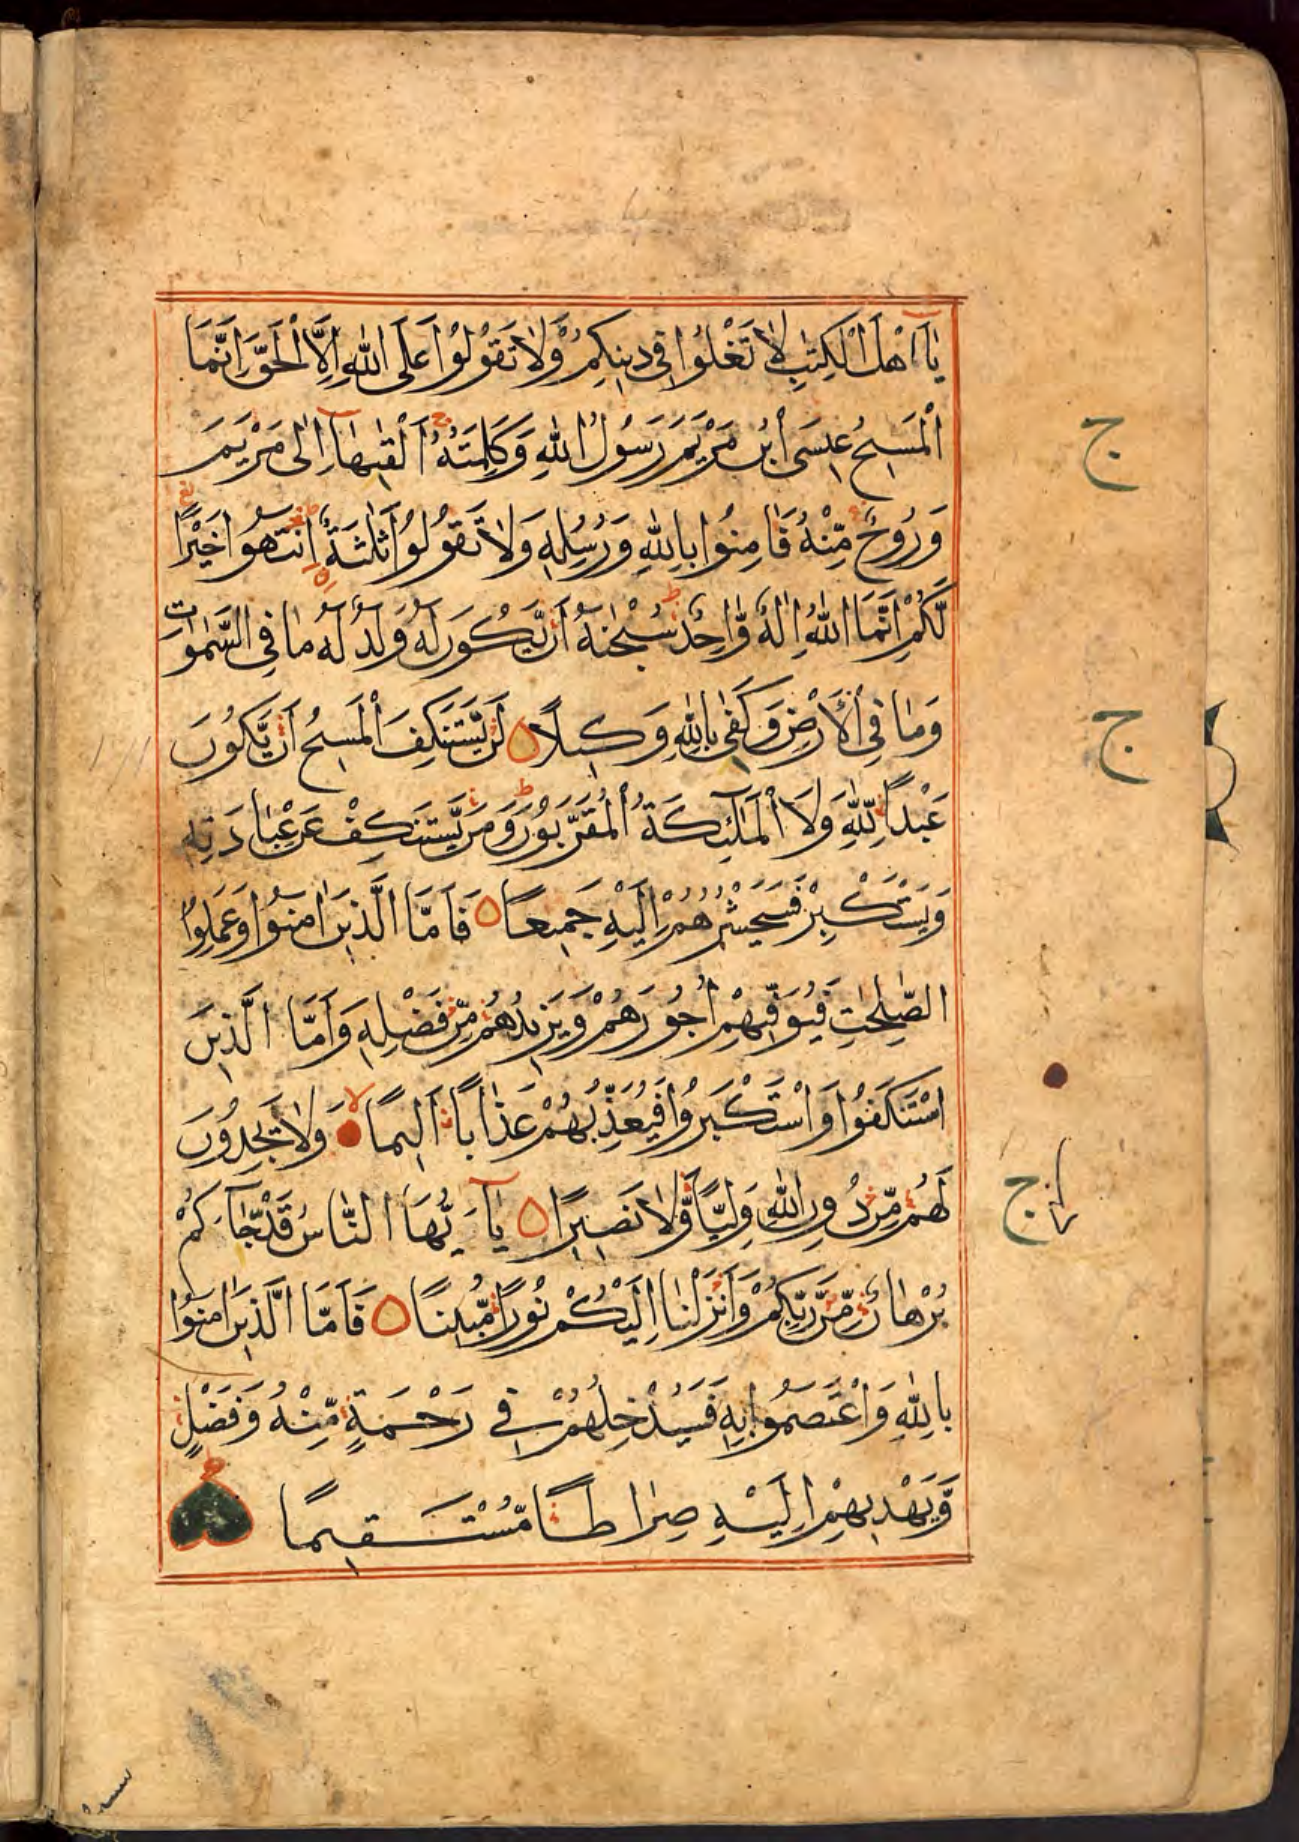 يَا اَهْلَ الْكِتٰبِ لَا تَغْلُوْا فِى دِيْنِكُمْ وَلَا تَقُوْلُوْا عَلَى اللّٰهِ اِلَّا الْحَقَّ اِنَّمَا
الْمَسِيْحُ عِيْسَى ابْنُ مَرْيَمَ رَسُوْلُ اللّٰهِ وَكَلِمَتُهُ اَلْقٰىهَا اِلٰى مَرْيَمَ
وَرُوْحٌ مِّنْهُ فَاٰمِنُوْا بِاللّٰهِ وَرُسُلِهٖ وَلَا تَقُوْلُوْا ثَلٰثَةٌ اِنْتَهُوْا خَيْرًا
لَّكُمْ اِنَّمَا اللّٰهُ اِلٰهٌ وَّاحِدٌ سُبْحٰنَهُ اَنْ يَّكُوْنَ لَهُ وَلَدٌ لَهُ مَا فِى السَّمٰوَات
وَمَا فِى الْاَرْضِ وَكَفٰى بِاللّٰهِ وَكِيْلًا لَنْ يَّسْتَنْكِفَ الْمَسِيْحُ اَنْ يَّكُوْنَ
عَبْدًا لِلّٰهِ وَلَا الْمَلٰٓئِكَةُ الْمُقَرَّبُوْنَ وَمَنْ يَّسْتَنْكِفْ عَنْ عِبَادَتِهٖ
وَيَسْتَكْبِرْ فَسَيَحْشُرُهُمْ اِلَيْهِ جَمِيْعًا فَاَمَّا الَّذِيْنَ اٰمَنُوْا وَعَمِلُوا
الصّٰلِحٰتِ فَيُوَفِّيْهِمْ اُجُوْرَهُمْ وَيَزِيْدُهُمْ مِّنْ فَضْلِهٖ وَاَمَّا الَّذِيْنَ
اسْتَنْكَفُوْا وَاسْتَكْبَرُوْا فَيُعَذِّبُهُمْ عَذَابًا اَلِيْمًا وَلَا يَجِدُوْنَ
لَهُمْ مِّنْ دُوْنِ اللّٰهِ وَلِيًّا وَّلَا نَصِيْرًا يَآ اَيُّهَا النَّاسُ قَدْ جَآءَكُمْ
بُرْهَانٌ مِّنْ رَّبِّكُمْ وَاَنْزَلْنَا اِلَيْكُمْ نُوْرًا مُّبِيْنًا فَاَمَّا الَّذِيْنَ اٰمَنُوْا
بِاللّٰهِ وَاعْتَصَمُوْا بِهٖ فَسَيُدْخِلُهُمْ فِى رَحْمَةٍ مِّنْهُ وَفَضْلٍ
وَّيَهْدِيْهِمْ اِلَيْهِ صِرَاطًا مُّسْتَقِيْمًا
ج
ج
ج